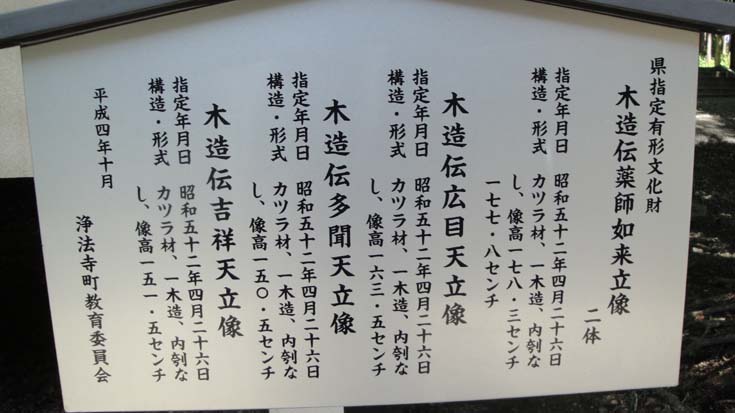 県指定有形文化財
木造伝薬師如来立像
二体
指定年月日　昭和五十二年四月二十六日
構造・形式　カツラ材、一木造、内刳な
し、像高一七八・三センチ
一七七・八センチ
木造伝広目天立像
指定年月日　昭和五十二年四月二十六日
構造・形式　カツラ材、一木造、内刳な
し、像高一六三・五センチ
木造伝多聞天立像
指定年月日　昭和五十二年四月二十六日
構造・形式　カツラ材、一木造、内刳な
し、像高一五〇・五センチ
木造伝吉祥天立像
指定年月日　昭和五十二年四月二十六日
構造・形式　カツラ材、一木造、内刳な
し、像高一五一・五センチ
平成四年十月
浄法寺町教育委員会